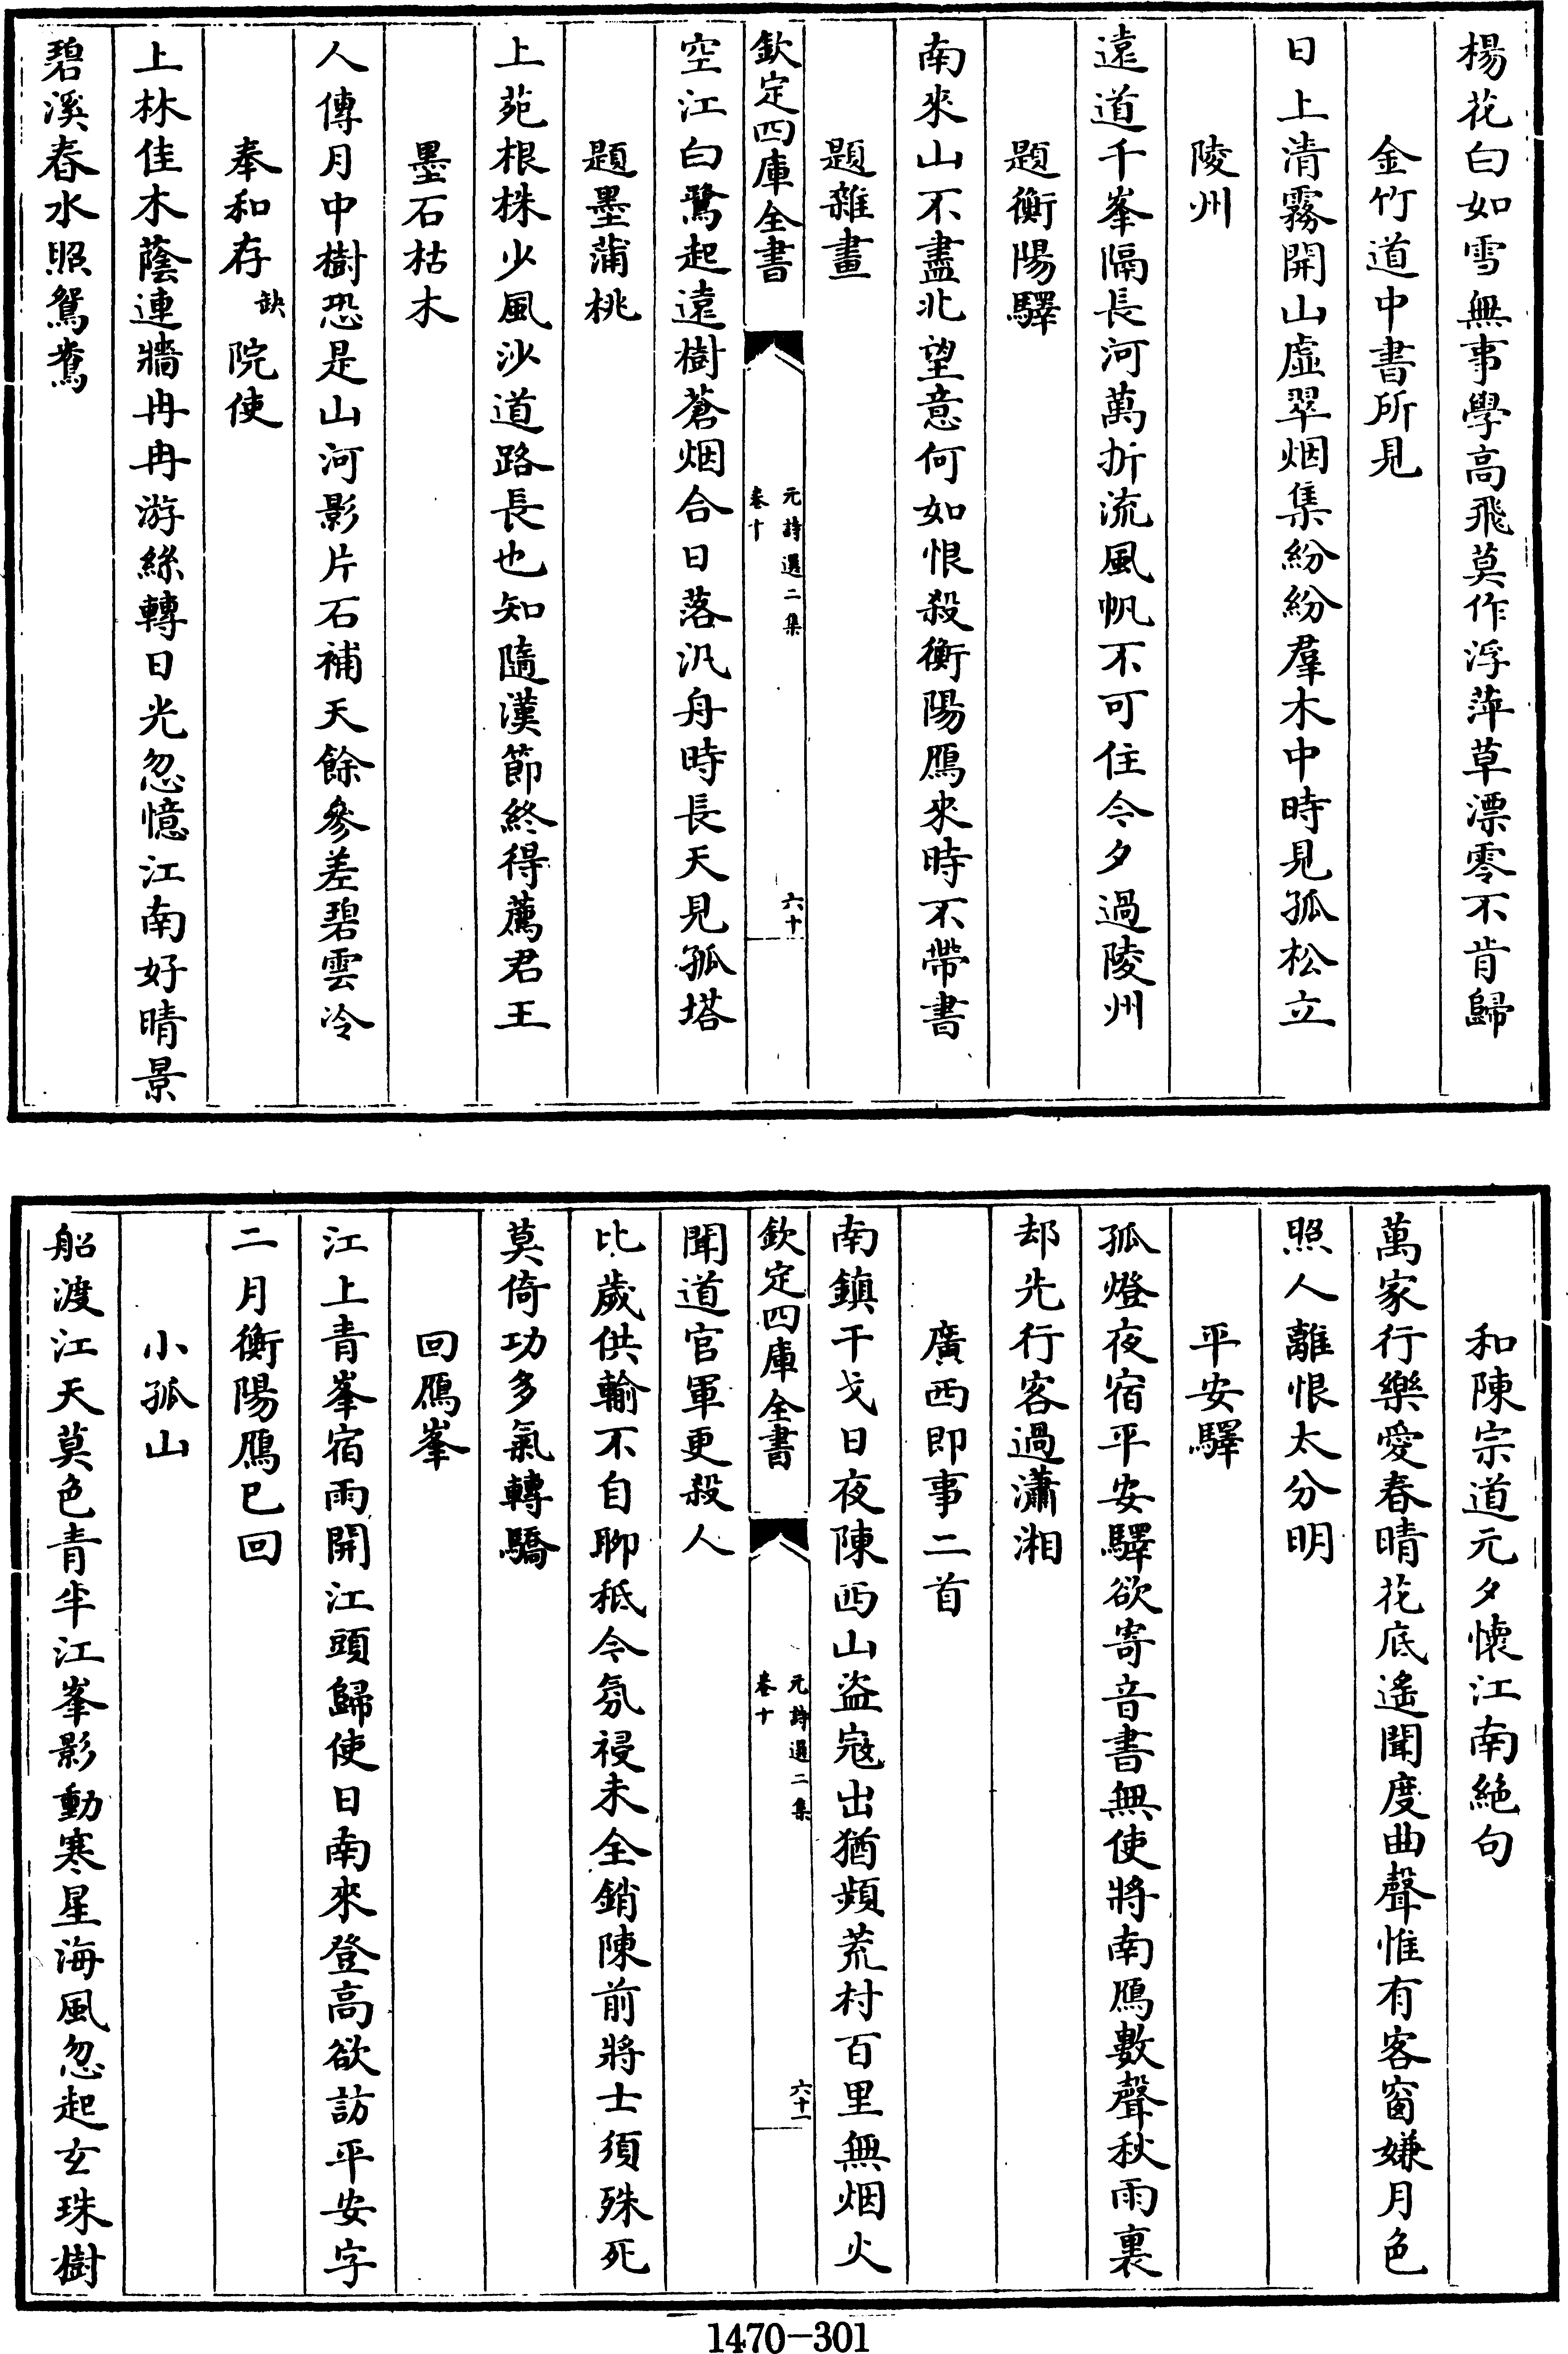 楊花白如雪無事學高飛莫作浮萍草漂零不肯歸
金竹道中書所見
日上清霧開山虛翠烟集紛紛羣木中時見孤松立
陵州
遠道千峯隔長河萬折流風帆不可住今夕過陵州
題衡陽驛
南來山不盡北望意何如恨殺衡陽鴈來時不帶書
題雜畫
欽定四庫全書
元詩選二集
卷十
六十
空江白鷺起遠樹蒼烟合日落汎舟時長天見孤塔
題墨蒲桃
上苑根株少風沙道路長也知隨漢節終得薦君王
墨石枯木
人傳月中樹恐是山河影片石補天餘參差碧雲冷
奉和存缺院使
上林佳木蔭連牆冉冉游絲轉日光忽憶江南好晴景
碧溪春水照鴛鴦
和陳宗道元夕懷江南絶句
萬家行樂愛春晴花底遙聞度曲聲惟有客窗嫌月色
照人離恨太分明
平安驛
孤燈夜宿平安驛欲寄音書無使將南鴈數聲秋雨裏
却先行客過瀟湘
廣西即事二首
南鎮干戈日夜陳西山盗宼出猶頻荒村百里無烟火
欽定四庫全書
元詩選二集
卷十
六十一
聞道官軍更殺人
比歲供輸不自聊秪今氛祲未全銷陳前將士須殊死
莫倚功多氣轉驕
回鴈峯
江上青峯宿雨開江頭歸使日南來登高欲訪平安字
二月衡陽鴈已回
小孤山
船渡江天莫色青半江峯影動寒星海風忽起玄珠樹
1470-301